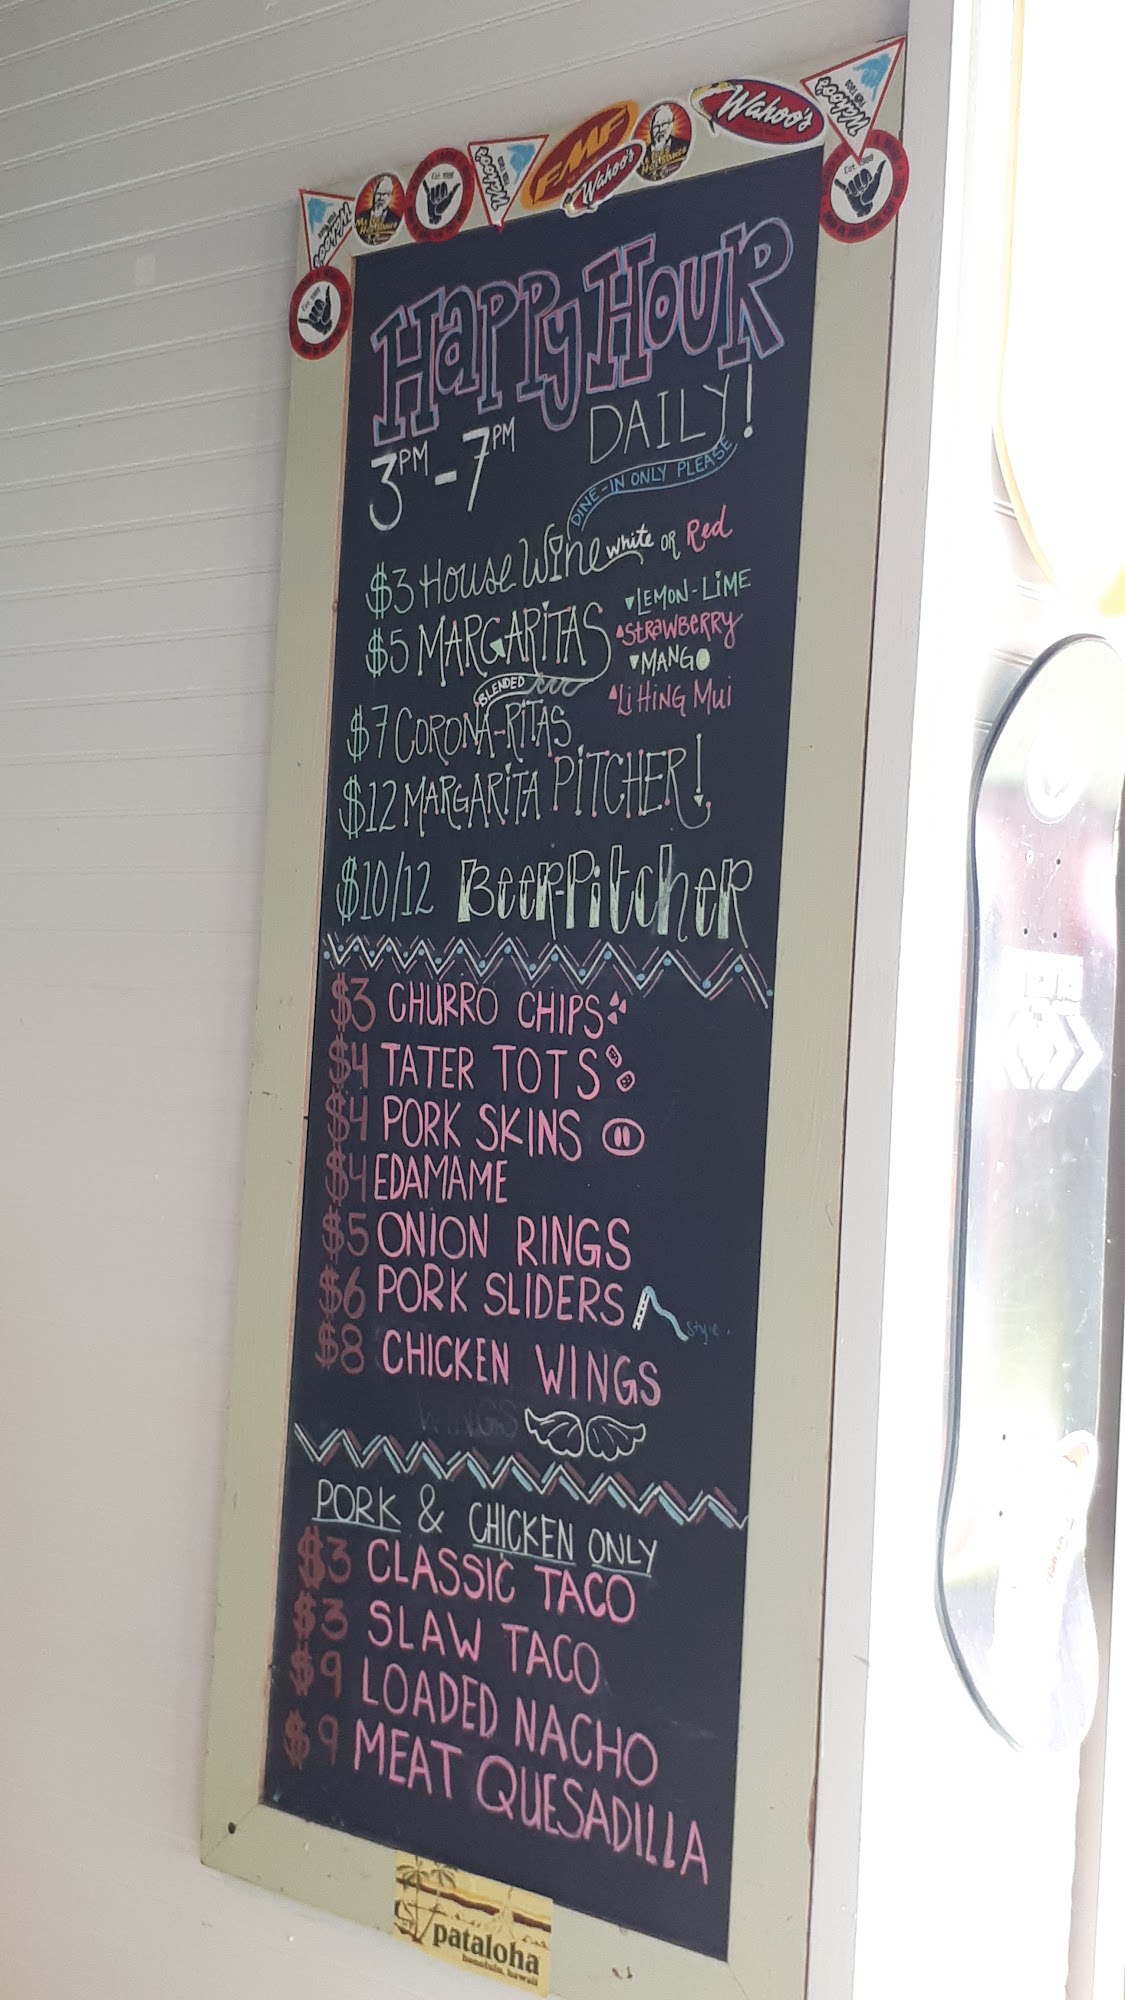 Wahoo's
FMF
Wahoo's
Wahoo's
Wahoo's
Wahoo's
HAPPY HOUR
3PM-7PM DAILY!
DINE-IN ONLY PLEASE
$3 House Wine white OR Red
$5 MARGARITAS
BLENDED
LEMON-LIME
STRAWBERRY
MANGO
Li HING MUI
$7 CORONA-RITAS
$12 MARGARITA PITCHER!
$10/12 Beer-Pitcher
$3 CHURRO CHIPS
$4 TATER TOTS
$4 PORK SKINS
$4 EDAMAME
$5 ONION RINGS
$6 PORK SLIDERS style.
$8 CHICKEN WINGS
WINGS
PORK & CHICKEN ONLY
$3 CLASSIC TACO
$3 SLAW TACO
$9 LOADED NACHO
$9 MEAT QUESADILLA
pataloha
honolulu, hawaii